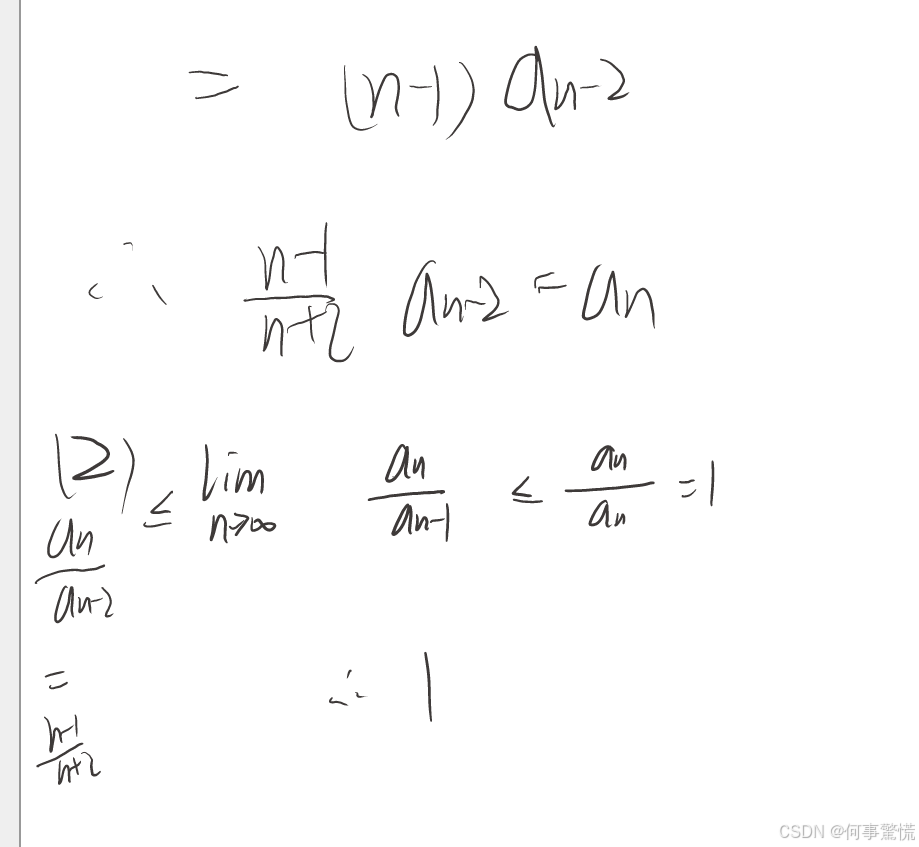 = (n-1) an-2
∴ n-1/n+2 an-2 = an
(2) an/an-2 ≤ lim n→∞ an/an-1 ≤ an/an = 1
= n-1/n+2
∴ 1
CSDN @何事驚慌